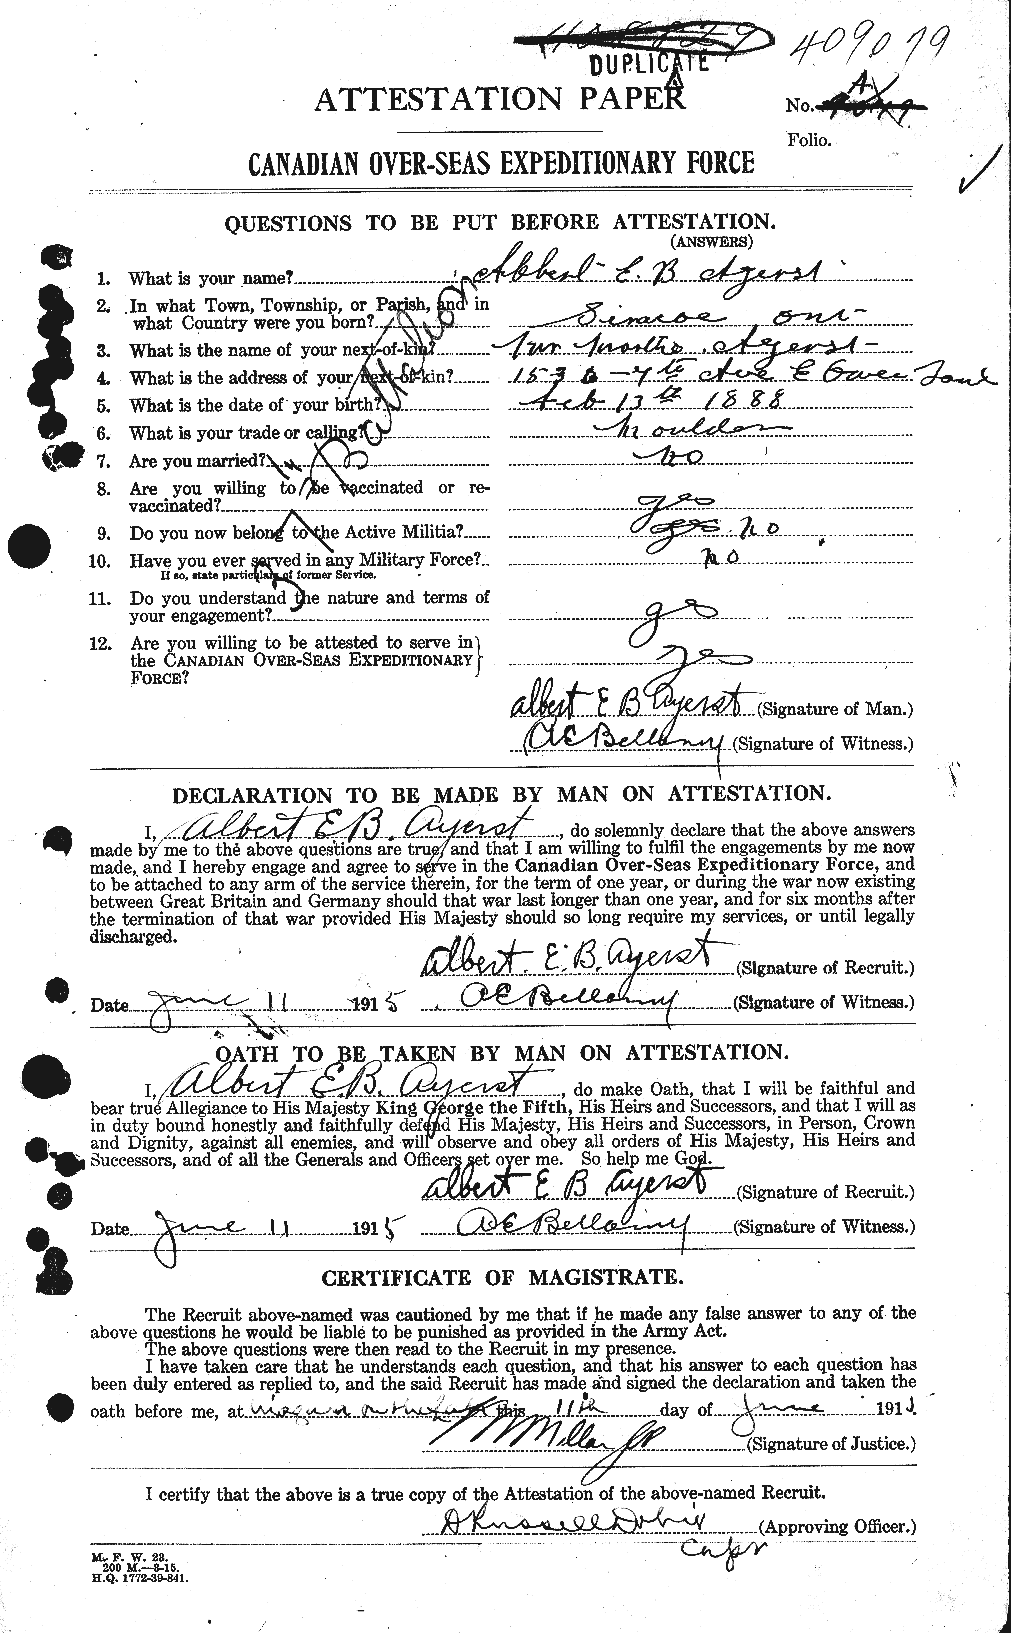 409079
DUPLICATE
ATTESTATION PAPER
No.
Folio.
CANADIAN OVER-SEAS EXPEDITIONARY FORCE
QUESTIONS TO BE PUT BEFORE ATTESTATION.
(ANSWERS)
1. What is your name? Albert E. B Ayerst
2. In what Town, Township, or Parish, and in
what Country were you born? Simcoe Ont
3. What is the name of your next-of-kin? Ayerst
4. What is the address of your next-of-kin? 1536 - 7th Ave E Owen Sound
5. What is the date of your birth? Feb 13th 1888
6. What is your trade or calling? Moulder
7. Are you married? No
8. Are you willing to be vaccinated or re-
vaccinated? yes
9. Do you now belong to the Active Militia? yes no
10. Have you ever served in any Military Force? no
If so, state particulars of former Service.
11. Do you understand the nature and terms of
your engagement? yes
12. Are you willing to be attested to serve in
the CANADIAN OVER-SEAS EXPEDITIONARY
FORCE? yes
37th Battalion
Albert E B Ayerst (Signature of Man.)
A E Bellamy (Signature of Witness.)
DECLARATION TO BE MADE BY MAN ON ATTESTATION.
I, Albert E B. Ayerst, do solemnly declare that the above answers
made by me to the above questions are true, and that I am willing to fulfil the engagements by me now
made, and I hereby engage and agree to serve in the Canadian Over-Seas Expeditionary Force, and
to be attached to any arm of the service therein, for the term of one year, or during the war now existing
between Great Britain and Germany should that war last longer than one year, and for six months after
the termination of that war provided His Majesty should so long require my services, or until legally
discharged.
Albert. E. B. Ayerst (Signature of Recruit.)
Date June 11 1915 A E Bellamy (Signature of Witness.)
OATH TO BE TAKEN BY MAN ON ATTESTATION.
I, Albert E. B. Ayerst, do make Oath, that I will be faithful and
bear true Allegiance to His Majesty King George the Fifth, His Heirs and Successors, and that I will as
in duty bound honestly and faithfully defend His Majesty, His Heirs and Successors, in Person, Crown
and Dignity, against all enemies, and will observe and obey all orders of His Majesty, His Heirs and
Successors, and of all the Generals and Officers set over me. So help me God.
Albert E B Ayerst (Signature of Recruit.)
Date June 11 1915 A E Bellamy (Signature of Witness.)
CERTIFICATE OF MAGISTRATE.
The Recruit above-named was cautioned by me that if he made any false answer to any of the
above questions he would be liable to be punished as provided in the Army Act.
The above questions were then read to the Recruit in my presence.
I have taken care that he understands each question, and that his answer to each question has
been duly entered as replied to, and the said Recruit has made and signed the declaration and taken the
oath before me, at Niagara on the Lake this 11th day of June 1915.
Millar JP (Signature of Justice.)
I certify that the above is a true copy of the Attestation of the above-named Recruit.
A Russell Dobie (Approving Officer.)
Capt
M. F. W. 23.
200 M.—3-15.
H.Q. 1772-39-841.